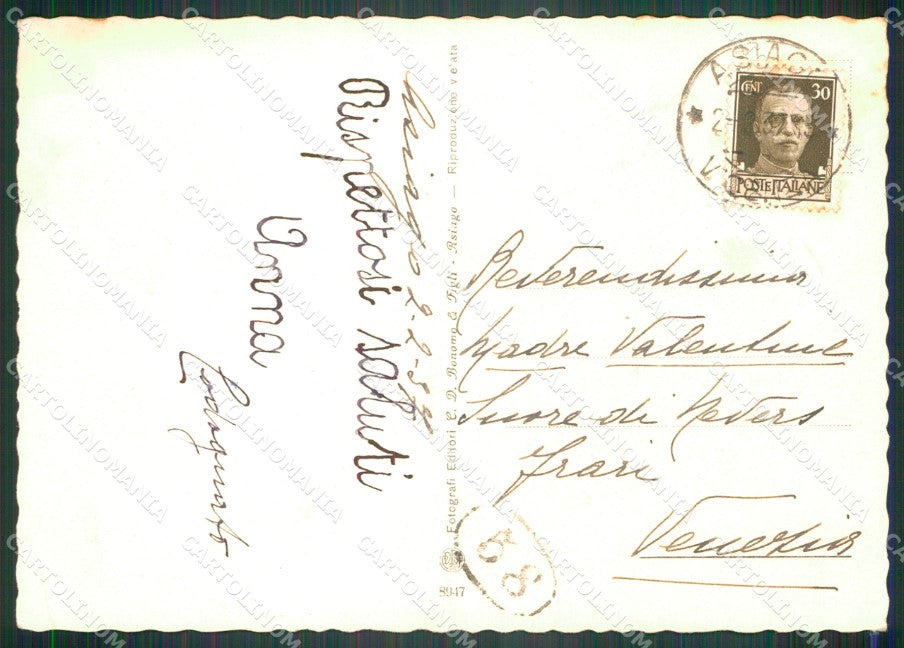 Asiago 2-2-34
Rispettosi saluti
Anna
Fotografi Editori C. D. Bonomo & Figli - Asiago — Riproduzione vietata
8947
ASIAGO
CENT 30
POSTE ITALIANE
Reverendissima
Madre Valentine
Suore di Nevers
Frari
Venezia
CARTOLINOMANIA